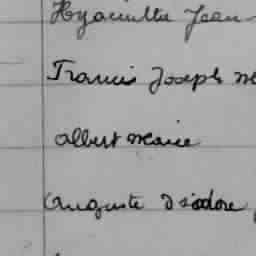 Hyacinthe Jean
Francis Joseph
Albert Marie
Auguste Isidore